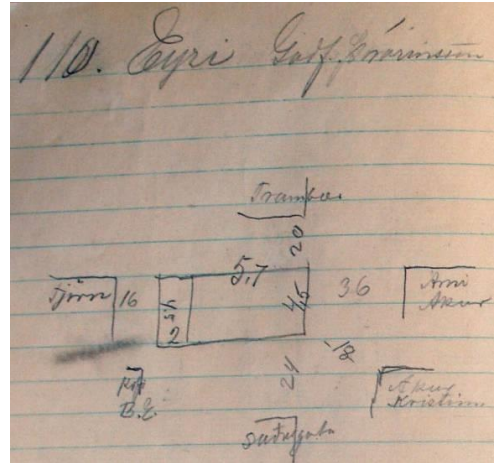 110. Eyri Guðf. Þórarinsson
Frambær
20
5,7
Tjörn 16
4,5
2
4,5
36
Árni
Akur
18
24
Kof
B.E.
Akur
Kristinn
Suðurgata